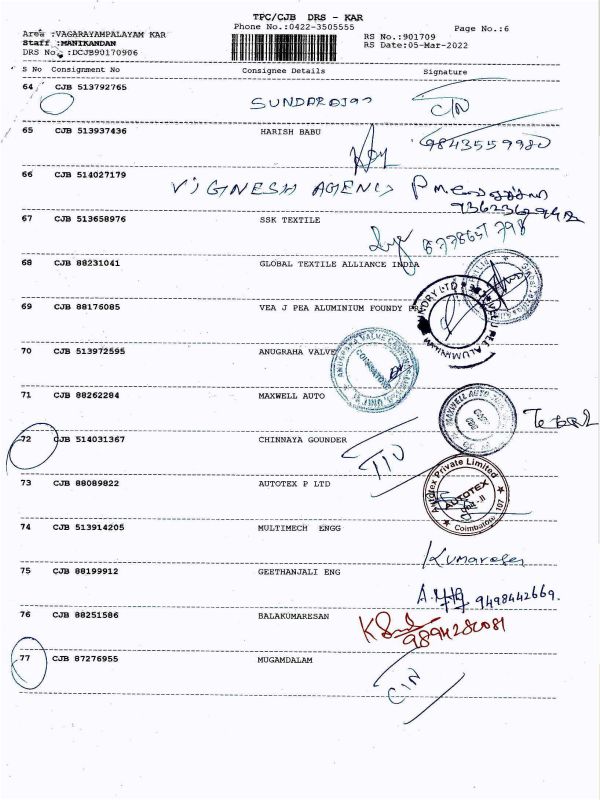 TPC/CJB DRS - KAR
Phone No.:0422-3505555
Page No.:6
Area :VAGARAYAMPALAYAM KAR
Staff :MANIKANDAN
DRS No.:DCJB90170906
RS No.:901709
RS Date:05-Mar-2022
S No Consignment No Consignee Details Signature
64 CJB 513792765 SUNDARAJAN
65 CJB 513937436 HARISH BABU 9843559980
66 CJB 514027179
VIGNESH AGENCY
67 CJB 513658976 SSK TEXTILE
68 CJB 88231041 GLOBAL TEXTILE ALLIANCE INDIA
69 CJB 88176085 VEA J PEA ALUMINIUM FOUNDY
70 CJB 513972595 ANUGRAHA VALVE
71 CJB 88262284 MAXWELL AUTO
MAXWELL AUTO
72 CJB 514031367 CHINNAYA GOUNDER
73 CJB 88089822 AUTOTEX P LTD
Autotex Private Limited
AUTOTEX
Coimbatore
74 CJB 513914205 MULTIMECH ENGG
Kumaresan
75 CJB 88199912 GEETHANJALI ENG
9498442669.
76 CJB 88251586 BALAKUMARESAN
9894282081
77 CJB 87276955 MUGAMDALAM